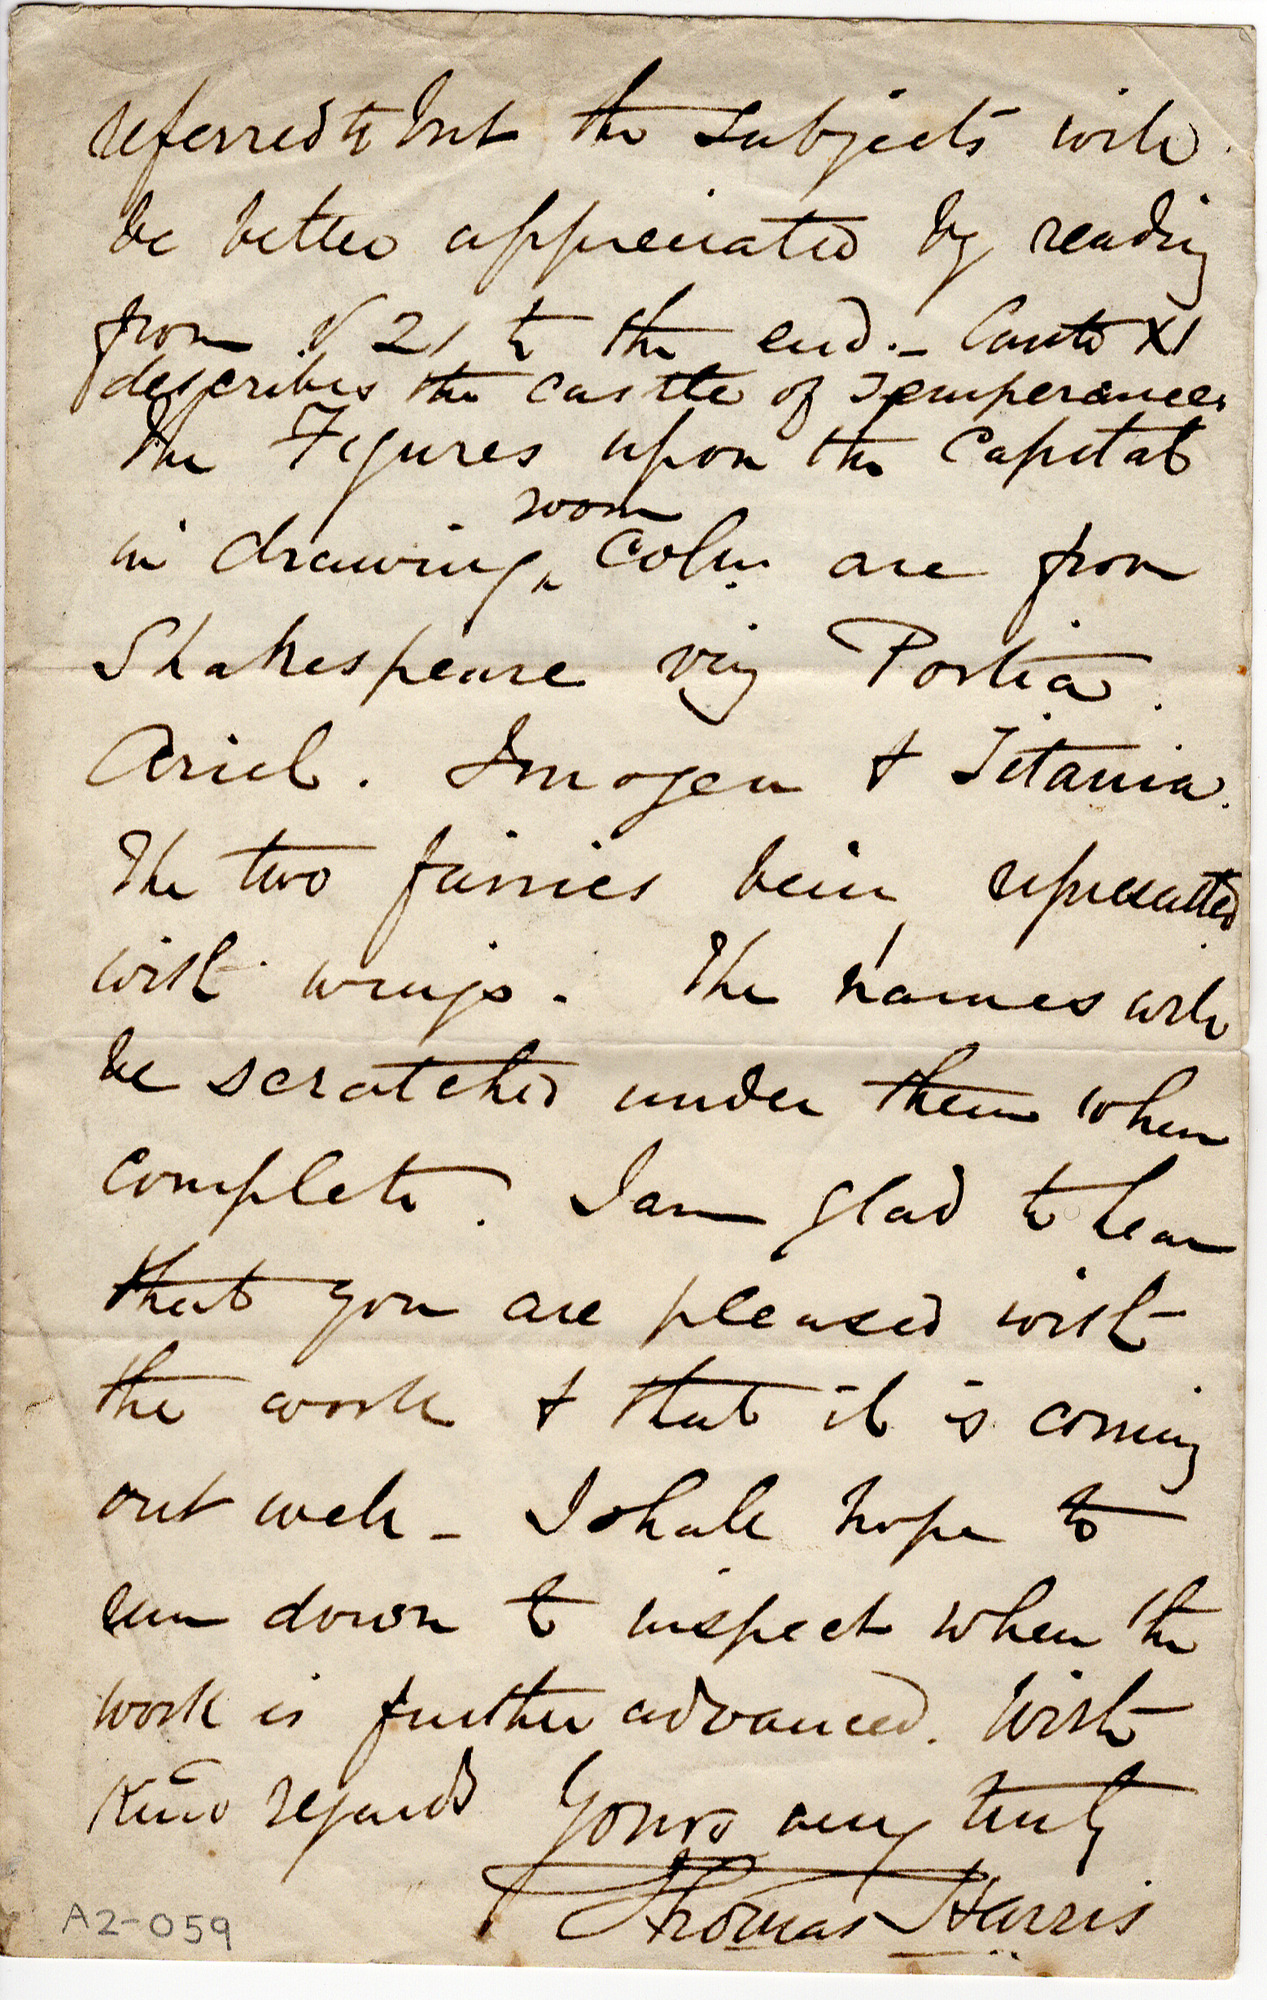 referred to but the subjects will
be better appreciated by reading
from V 21 to the end. – Canto XI
describes the castle of Temperance.
The Figures upon the Capital
room
in drawing ‸ Colm. are from
Shakespeare viz Portia.
Ariel. Imogen & Titania.
The two fairies being represented
with wings. The names will
be scratched under them when
complete. I am glad to hear
that you are pleased with
the work & that it is coming
out well – I shall hope to
run down to inspect when the
work is further advanced. With
Kind regards Yours very truly
Thomas Harris
A2-059